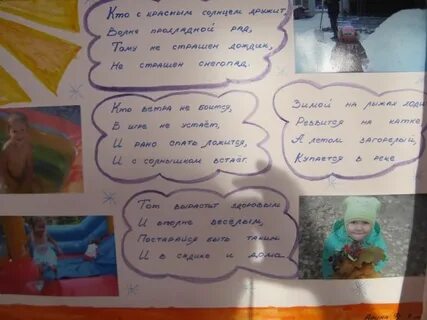 Кто с красным солнцем дружит,
Волне прохладной рад,
Тому не страшен дождик,
Не страшен снегопад.
Кто ветра не боится,
В игре не устаёт,
И рано спать ложится,
И с солнышком встаёт.
Зимой на лыжах
Резвится на катке
А летом загорелый,
Купается в реке
Тот вырастет здоровым
И вполне весёлым,
Постарайся быть таким
И в садике и дома.